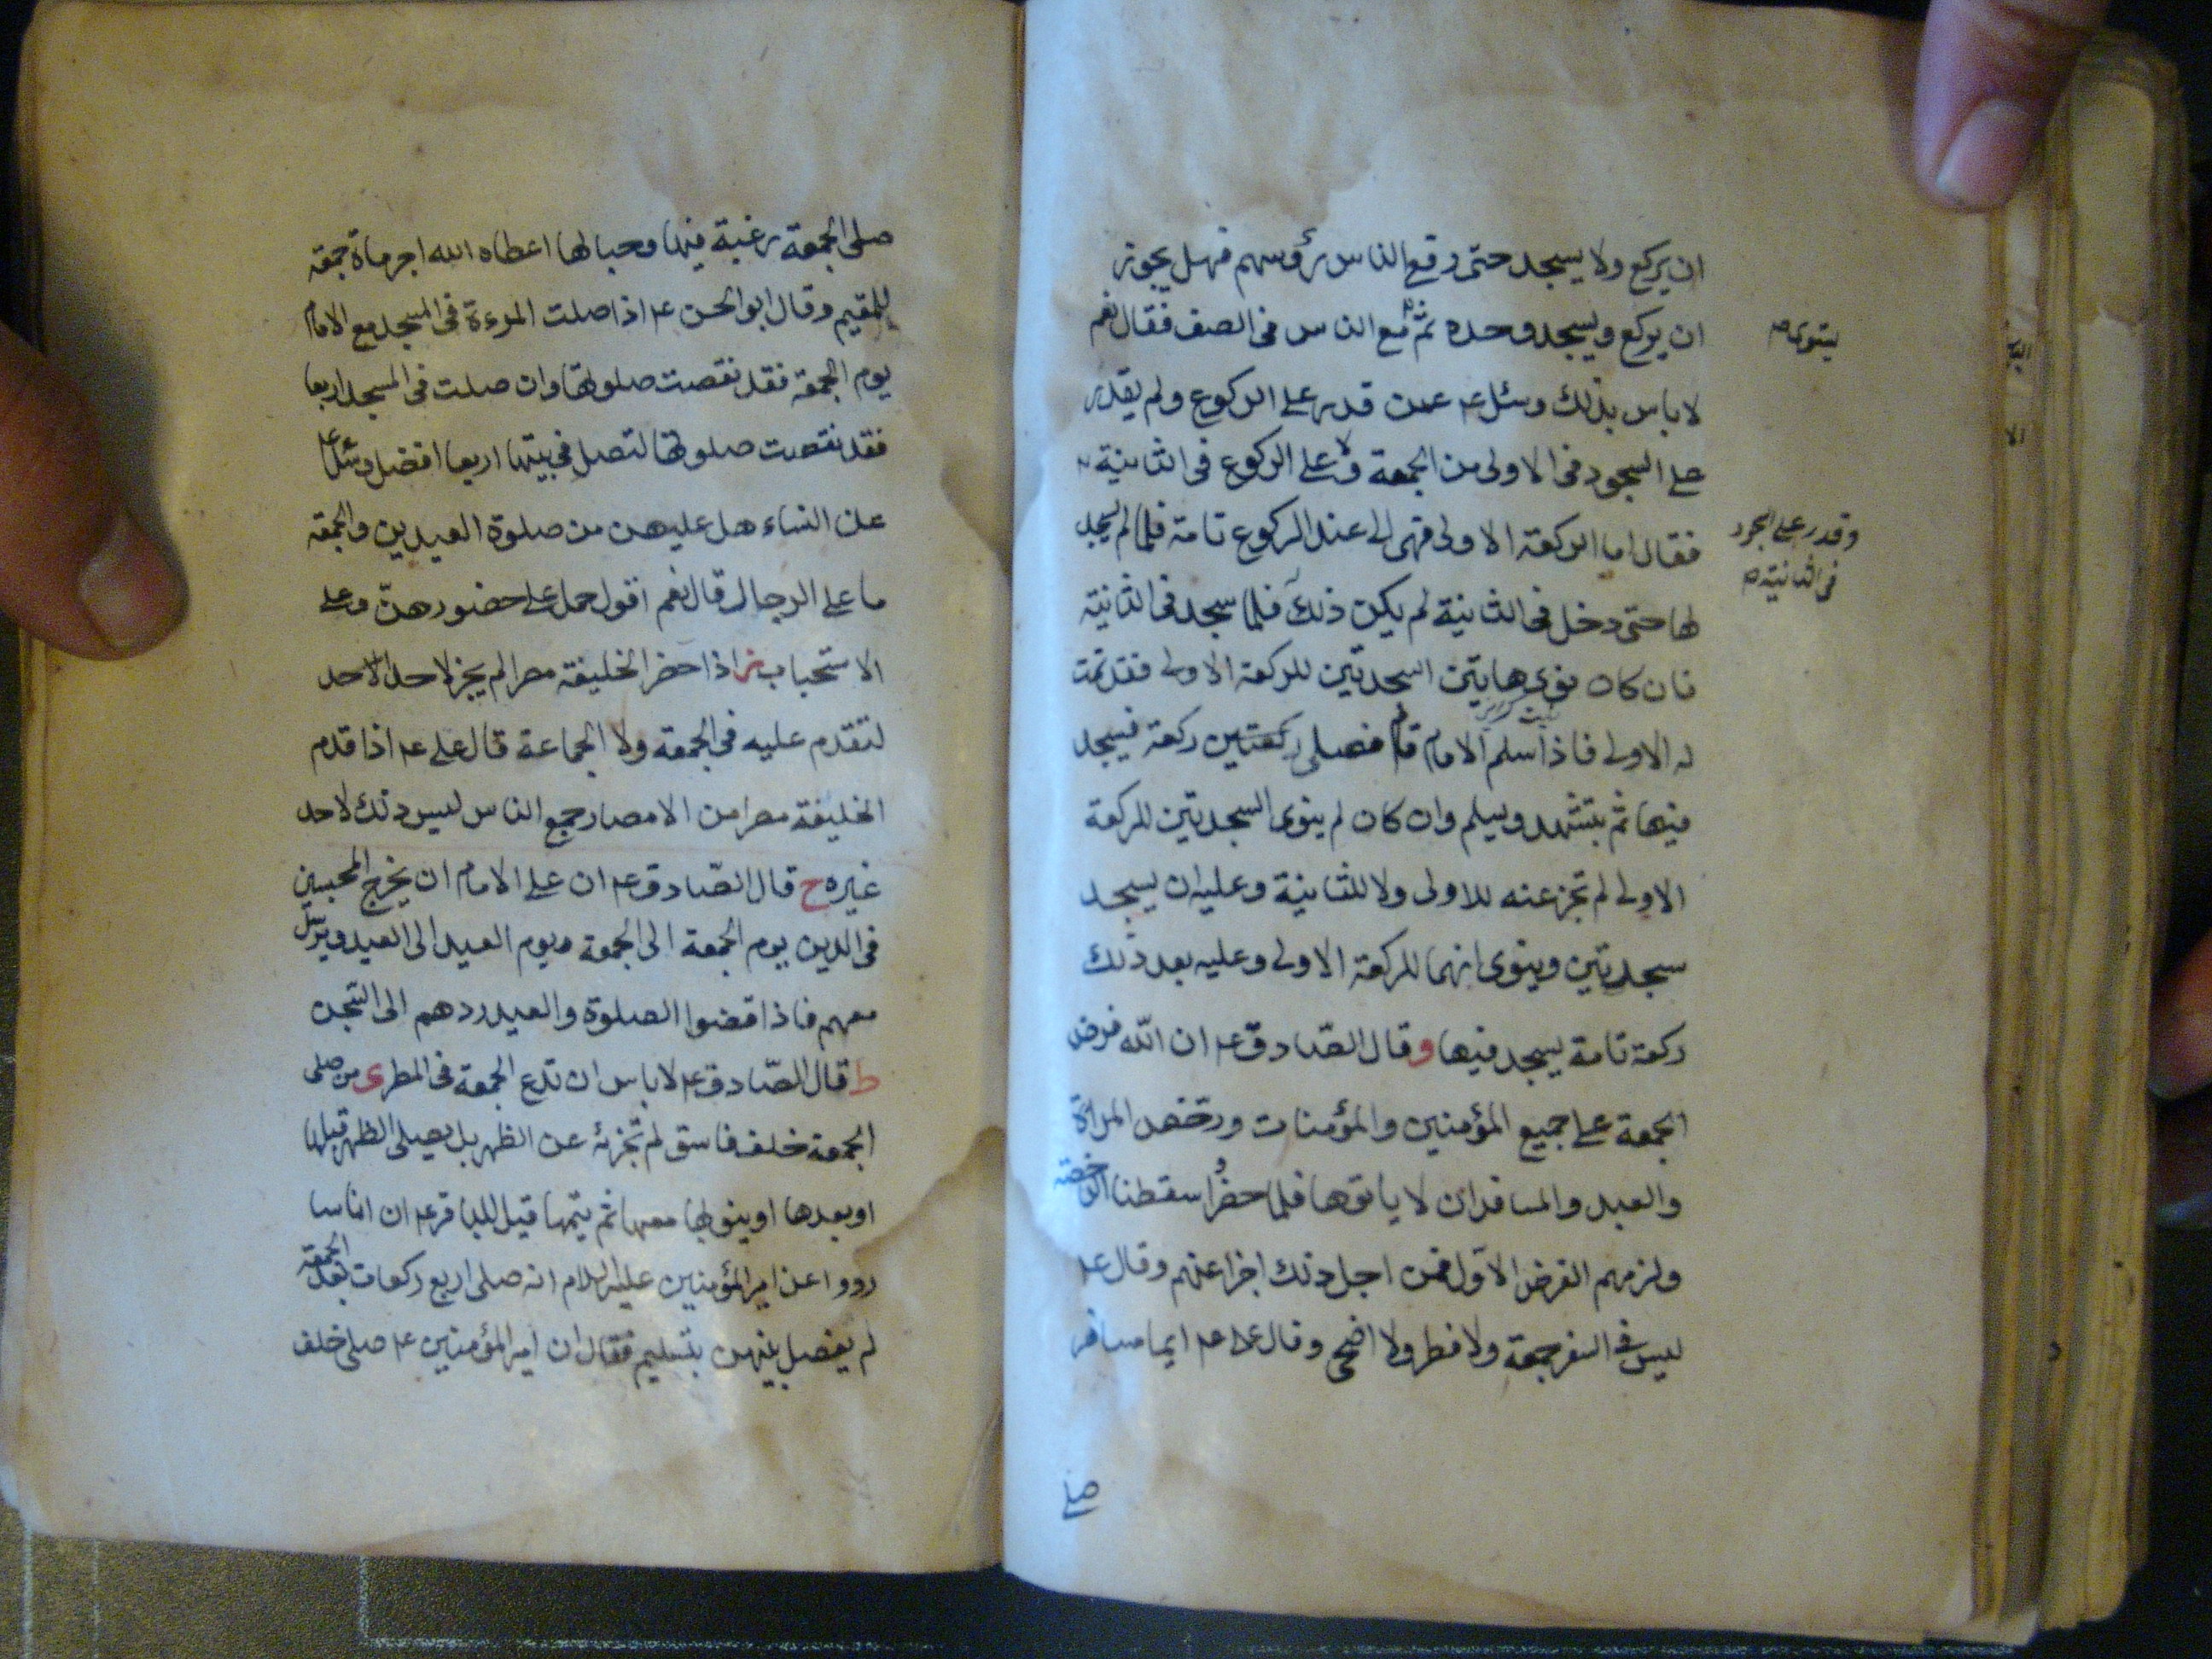 ان يركع ولا يسجد حتى رفع الناس رؤسهم فهل يجوز
ان يركع ويسجد وحده ثم مع الناس فى الصف فقال نعم
يستوى صح
لا باس بذلك وسئل ع عمن قدر على الركوع ولم يقدر
على السجود فى الاولى من الجمعة ولا على الركوع فى الثانية
وقدر على السجود
فى الثانية صح
فقال اما الركعة الاولى فهى الى عند الركوع تامة فلما لم يسجد
لها حتى دخل فى الثانية لم يكن ذلك له فلما سجد فى الثانية
فان كان نوى هاتين السجدتين للركعة الاولى فقد تمت
له الاولى فاذا سلم الامام قام فصلى ركعة فيسجد
فيها ثم يتشهد ويسلم وان كان لم ينوى السجدتين للركعة
الاولى لم تجز عنه للاولى ولا للثانية وعليه ان يسجد
سجدتين وينوى انهما للركعة الاولى وعليه بعد ذلك
ركعة تامة يسجد فيها و قال الصّادق ع ان الله فرض
الجمعة على جميع المؤمنين والمؤمنات ورخص المراة
والعبد والمسافر ان لا ياتوها فلما حضروا سقطنا الرخصة
ولزمهم الفرض الاول فمن اجل ذلك اجزا عنهم وقال ع
ليس فى السفر جمعة ولا فطر ولا اضحى وقال ع ايما مسافر
صلى
صلى الجمعة رغبة فيها وحبا لها اعطاه الله اجر ماة جمعة
للمقيم وقال ابو الحسن ع اذا صلت المرءة فى المسجد مع الامام
يوم الجمعة فقد نقصت صلوتها وان صلت فى المسجد اربعا
فقد نقصت صلوتها لتصل فى بيتها اربعا افضل وسئل ع
عن النساء هل عليهن من صلوة العيدين والجمعة
ما على الرجال قال نعم اقول حمل على حضورهنّ وعلى
الاستحباب ز اذا حضر الخليفة مصرا لم يجز لاحد
لتقدم عليه فى الجمعة ولا الجماعة قال على ع اذا قدم
الخليفة مصرا من الامصار جمع الناس ليس ذلك لاحد
غيره ح قال الصّادق ع ان على الامام ان يخرج المحبسين
فى الدين يوم الجمعة الى الجمعة ويوم العيد الى العيد ويرسل
معهم فاذا قضوا الصلوة والعيد ردهم الى السّجن
ط قال الصّادق ع لا باس ان تدع الجمعة فى المطر ى من صلى
الجمعة خلف فاسق لم تجزئه عن الظهر بل يصلى الظهر قبلها
او بعدها او ينويها معها ثم يتمها قيل للباقر ع ان اناسا
رووا عن امير المؤمنين عليه السلام انه صلى اربع ركعات بعد الجمعة
لم يفصل بينهن بتسليم فقال ان امير المؤمنين ع صلى خلف